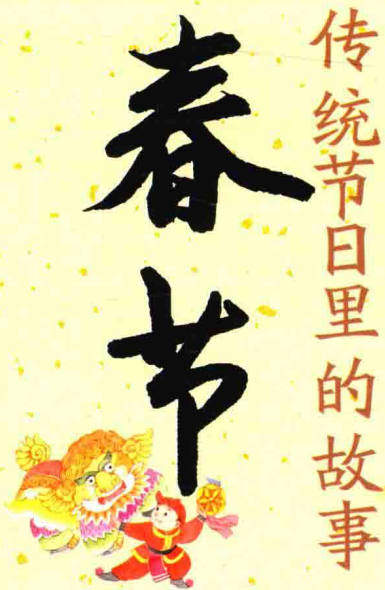 传统节日里的故事
春节